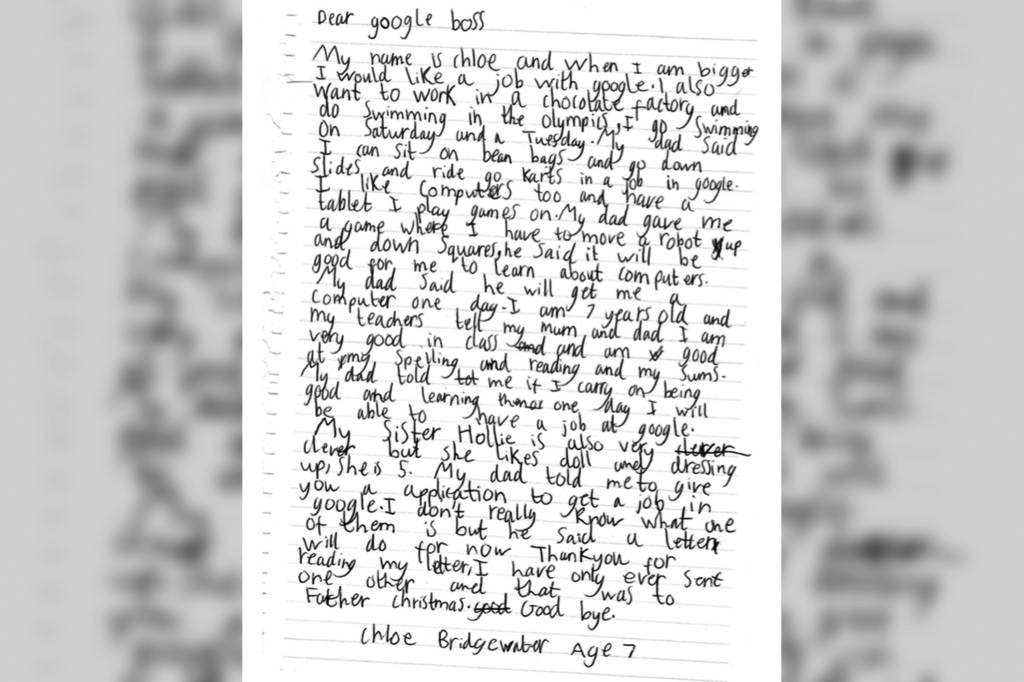 Dear google boss
My name is chloe and when I am bigger
I would like a job with google. I also
want to work in a chocolate factory and
do swimming in the olympics, I go swimming
on Saturday and a Tuesday. My dad said
I can sit on bean bags and go down
slides and ride go karts in a job in google.
I like computers too and have a
tablet I play games on. My dad gave me
a game where I have to move a robot up
and down squares, he said it will be
good for me to learn about computers.
My dad said he will get me a
computer one day. I am 7 years old and
my teachers tell my mum and dad I am
very good in class and and am good
at my spelling and reading and my sums.
My dad told tot me if I carry on being
good and learning one day I will
be able to have a job at google.
My Sister Hollie is also very clever
clever but she likes doll and dressing
up, she is 5. My dad told me to give
you a application to get a job in
google. I don't really know what one
of them is but he said a letter
will do for now Thankyou for
reading my letter, I have only ever sent
one other and that was to
Father christmas. good Good bye.
Chloe Bridgewater Age 7